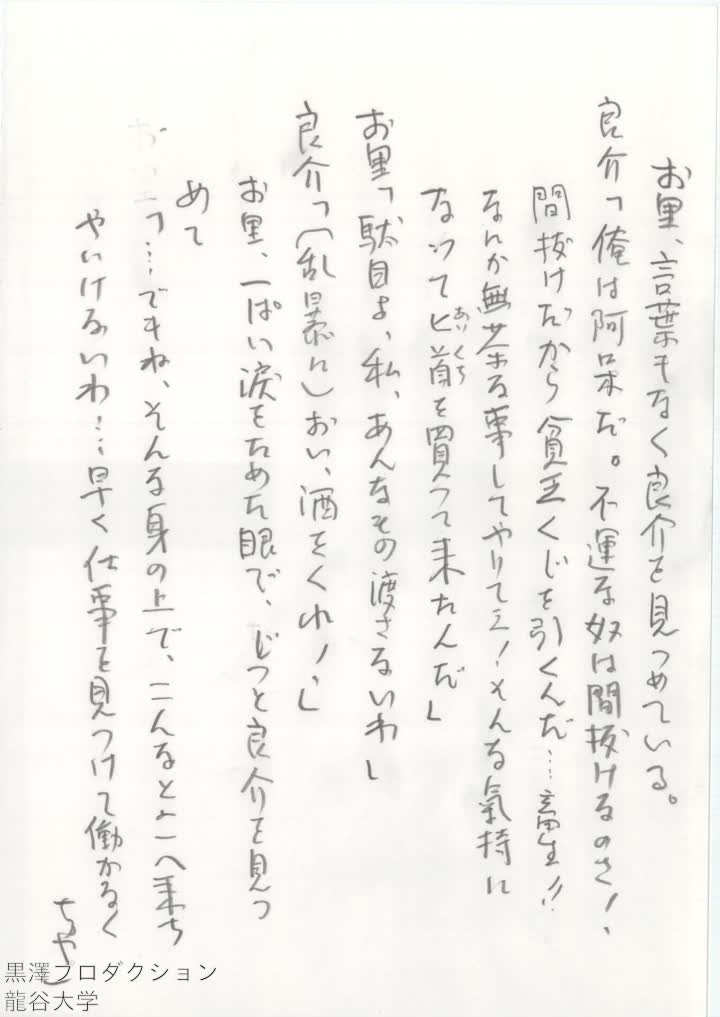 お里、言葉もなく良介を見つめている。
良介「俺は阿呆だ。不運な奴は間抜けなのさ！、
間抜けだから貧乏くじを引くんだ…畜生!!
なんか無茶な事してやりてえ！そんな気持に
なって匕首を買って来たんだ」
あいくち
お里「駄目よ、私、あんなもの渡さないわ」
良介「（乱暴に）おい、酒をくれ！、」
お里、一ぱい涙をためた眼で、じっと良介を見つ
めて
「…でもね、そんな身の上で、こんなとこへ来ち
ゃいけないわ…早く仕事を見つけて働かなく
ちゃ」
黒澤プロダクション
龍谷大学